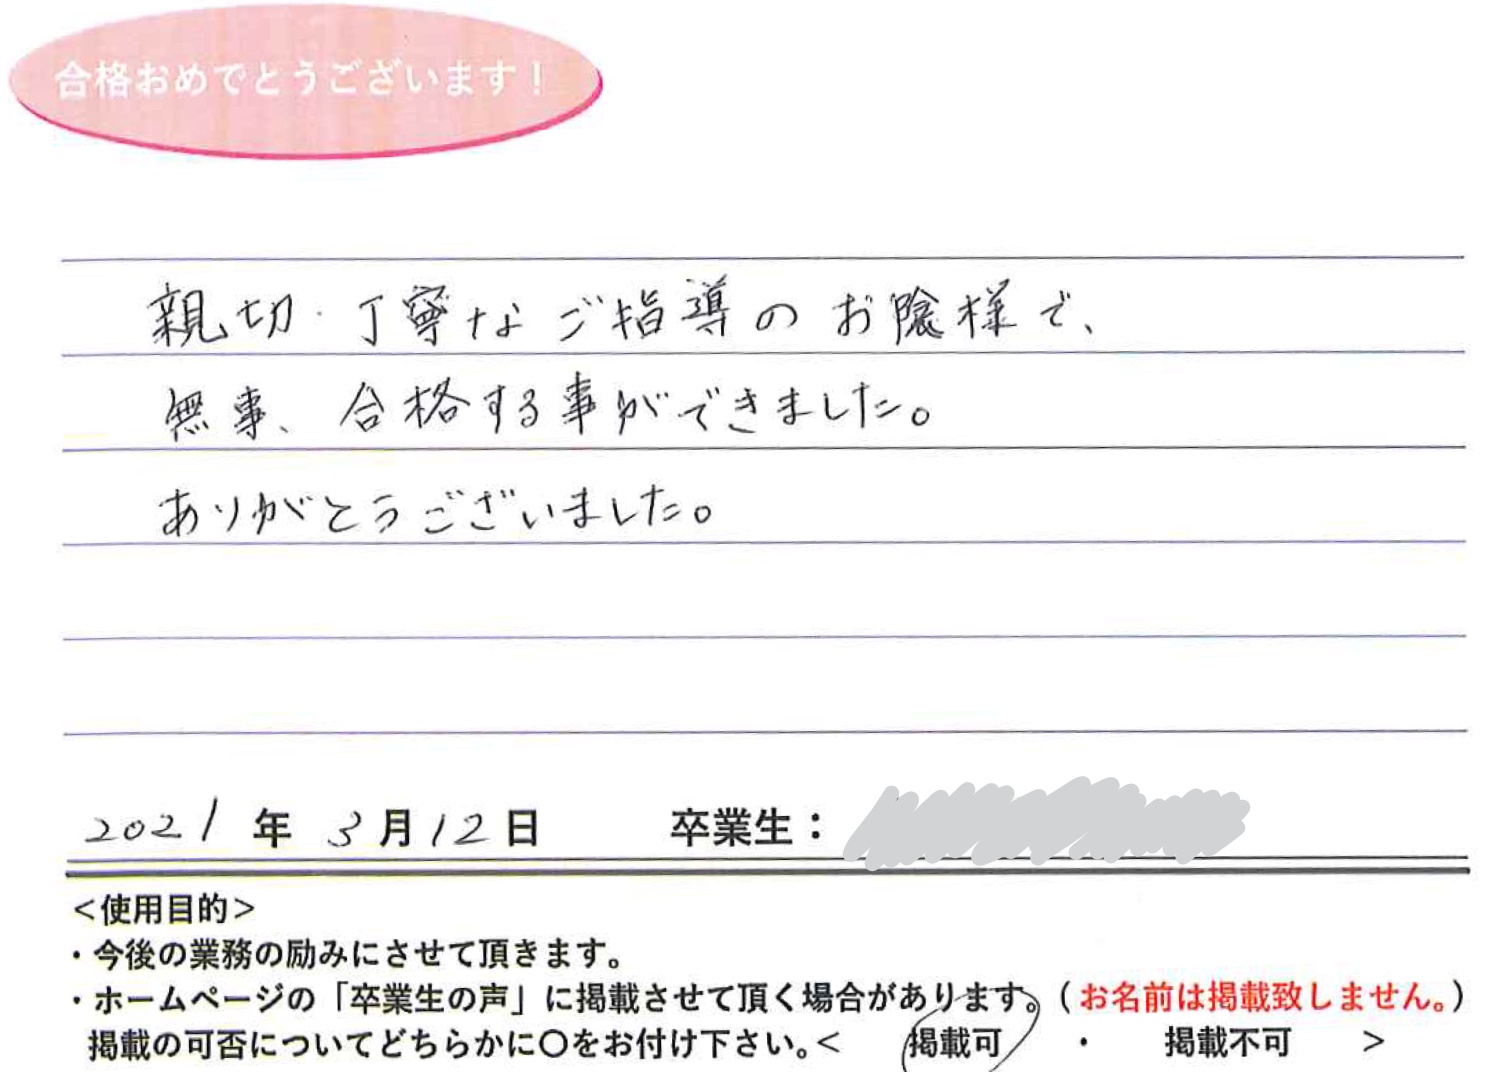 合格おめでとうございます！
親切・丁寧なご指導のお陰様で、
無事、合格する事ができました。
ありがとうございました。
2021年3月12日 卒業生：
＜使用目的＞
・今後の業務の励みにさせて頂きます。
・ホームページの「卒業生の声」に掲載させて頂く場合があります。（お名前は掲載致しません。）
掲載の可否についてどちらかに〇をお付け下さい。＜ 掲載可 ・ 掲載不可 ＞